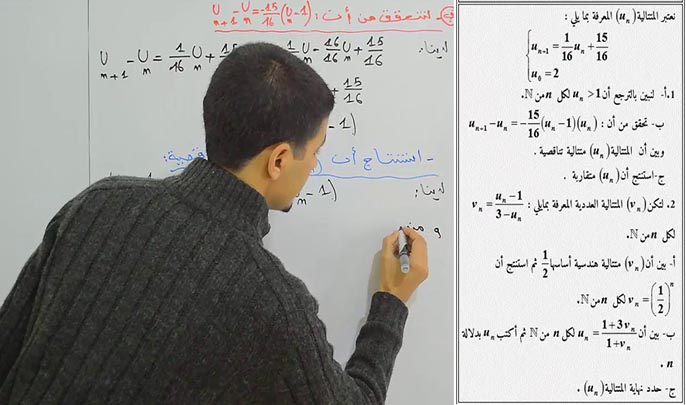 ب- لنتحقق من أن: U_{n+1} - U_n = -15/16 (U_n - 1)
لدينا:
U_{n+1} - U_n = 1/16 U_n + 15 1/16 U_n - 16/16 U_n + 15/16
+ 15/16
1)
- استنتاج أن
لدينا: U_n - 1)
و من
نعتبر المتتالية (u_n) المعرفة بما يلي :
u_{n+1} = 1/16 u_n + 15/16
u_0 = 2
1.أ- لنبين بالترجع أن u_n > 1 لكل n من ℕ.
ب- تحقق من أن : u_{n+1} - u_n = -15/16 (u_n - 1)(u_n)
وبين أن المتتالية (u_n) متتالية تناقصية .
ج-استنتج أن (u_n) متقاربة .
2. لتكن (v_n) المتتالية العددية المعرفة بمايلي : v_n = (u_n - 1)/(3 - u_n)
لكل n من ℕ.
أ- بين أن (v_n) متتالية هندسية أساسها 1/2 ثم استنتج أن
v_n = (1/2)^n لكل n من ℕ.
ب- بين أن u_n = (1 + 3v_n)/(1 + v_n) لكل n من ℕ ثم أكتب u_n بدلالة
n .
ج- حدد نهاية المتتالية (u_n) .